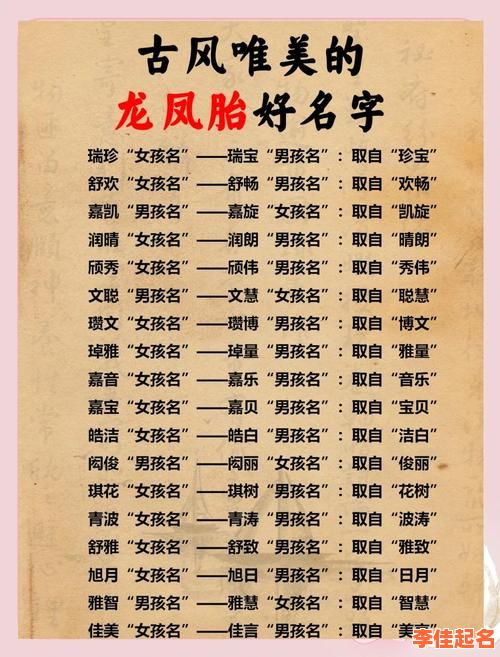 古风唯美的
龙凤胎好名字
瑞珍“女孩名”——瑞宝“男孩名”：取自“珍宝”
舒欢“女孩名”——舒畅“男孩名”：取自“欢畅”
嘉凯“男孩名”——嘉旋“女孩名”：取自“凯旋”
润晴“女孩名”——润朗“男孩名”：取自“晴朗”
颀秀“女孩名”——颀伟“男孩名”：取自“秀伟”
文聪“男孩名”——文慧“女孩名”：取自“聪慧”
瓒文“女孩名”——瓒博“男孩名”：取自“博文”
琸雅“女孩名”——琸量“男孩名”：取自“雅量”
嘉音“女孩名”——嘉乐“男孩名”：取自“音乐”
嘉宝“女孩名”——嘉贝“男孩名”：取自“宝贝”
皓洁“女孩名”——皓白“男孩名”：取自“洁白”
闳俊“男孩名”——闳丽“女孩名”：取自“俊丽”
琪花“女孩名”——琪树“男孩名”：取自“花树”
青波“女孩名”——青涛“男孩名”：取自“波涛”
舒雅“女孩名”——舒致“男孩名”：取自“雅致”
旭月“女孩名”——旭日“男孩名”：取自“日月”
雅智“男孩名”——雅慧“女孩名”：取自“智慧”
佳美“女孩名”——佳言“男孩名”：取自“美言”
李佳起名